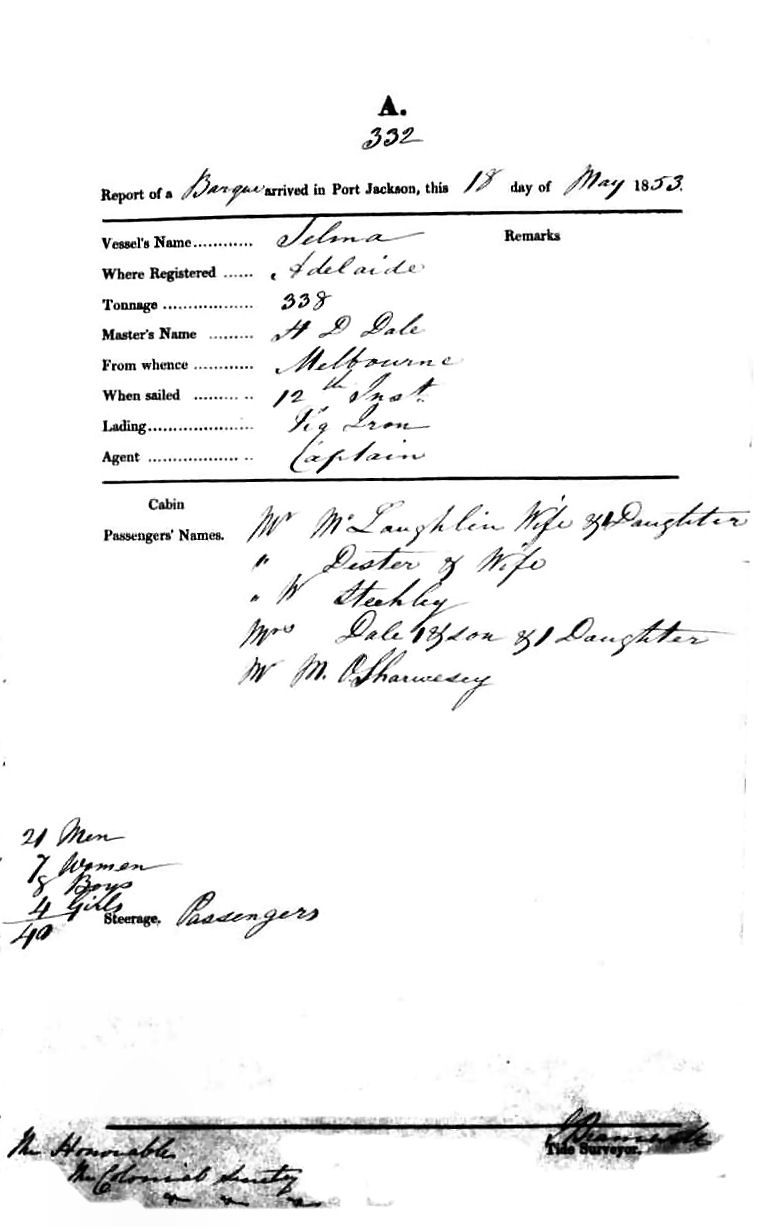 A.
332
Report of a Barque arrived in Port Jackson, this 18 day of May 1853.
Vessel's Name............ Selma Remarks
Where Registered ...... Adelaide
Tonnage .................. 338
Master's Name ......... H D Dale
From whence ............ Melbourne
When sailed ......... .. 12th Inst.
Lading..................... Pig Iron
Agent .................. .. Captain
Cabin
Passengers' Names.
Mr McLaughlin Wife & 1 Daughter
" Dester & Wife
" W Steehley
Mrs Dale 1 & son & 1 Daughter
Mr M.
21 Men
7 Women
8 Boys
4 Girls
40
Steerage. Passengers
The Honorable
The Colonial Secrety
Tide Surveyor.